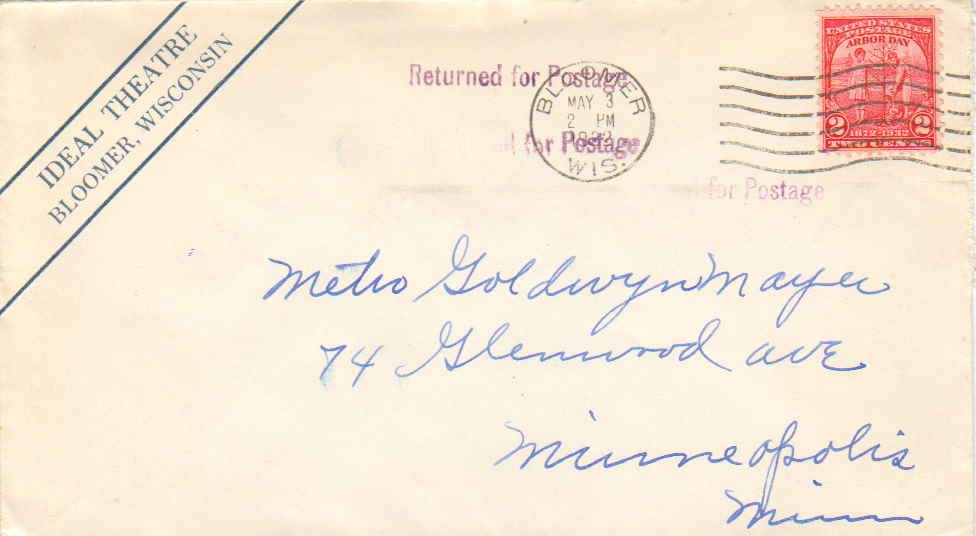 IDEAL THEATRE
BLOOMER, WISCONSIN
Returned for Postage
for Postage
for Postage
BLOOMER
MAY 3
2 PM
1932
WIS.
UNITED STATES
POSTAGE
ARBOR DAY
2 2
1872-1932
TWO CENTS
Metro Goldwyn Mayer
74 Glenwood ave
Minneapolis
Minn